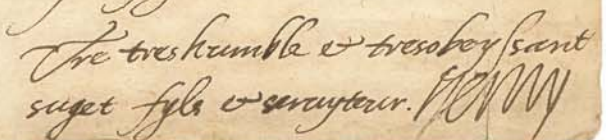 Vre treshumble & tresobeyssant
suget fyls & servyteur. Henry